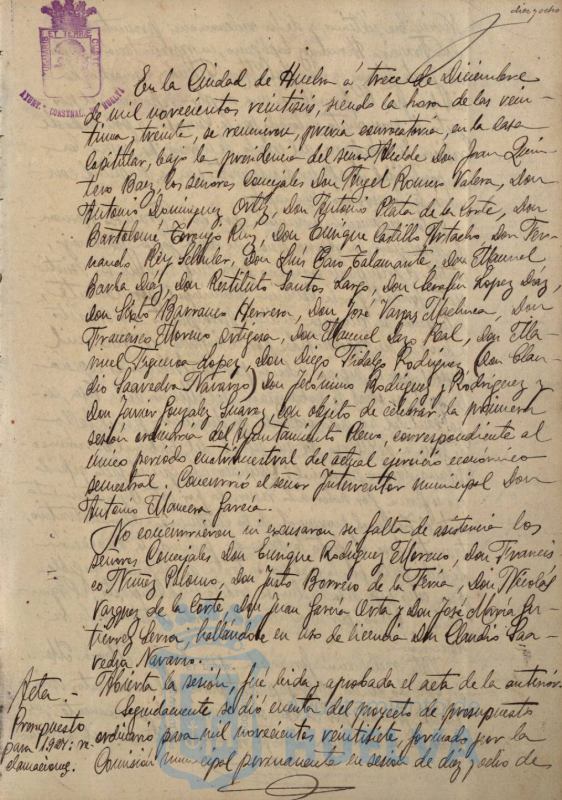 diez y ocho
AYUNT. CONSTNAL. DE HUELVA
En la Ciudad de Huelva á trece de Diciembre
de mil novecientos veintiseis, siendo la hora de las vein-
tiuna, treinta, se reunieron, previa convocatoria, en la Casa
Capitular, bajo la presidencia del señor Alcalde Don Juan Quin-
tero Baez, los señores Concejales Don Angel Romero Valera, Don
Antonio Domínguez Ortiz, Don Antonio Plata de la Corte, Don
Bartolomé Toronjo Ruiz, Don Enrique Castillo Artacho, Don Fer-
nando Rey Schuler, Don Luis Caro Talamante, Don Manuel
Barba Díaz, Don Restituto Santos Largo, Don Serafín Lopez Díaz,
Don Sixto Barranco Herrera, Don José Vargas Machuca, Don
Francisco Moreno Ortigosa, Don Manuel Real, Don Ma-
nuel Figueroa Lopez, Don Diego Fidalgo Rodríguez (Don Clau-
dio Saavedra Navarro) Don Jerónimo Rodríguez y Rodríguez y
Don Javier Gonzalez Suarez, con objeto de celebrar la primera
sesión ordinaria del Ayuntamiento Pleno, correspondiente al
único periodo cuatrimestral del actual ejercicio económico
semestral. Concurrió el señor Interventor municipal Don
Antonio Mancera García.
No concurrieron ni excusaron su falta de asistencia los
señores Concejales Don Enrique Rodríguez Moreno, Don Francis-
co Nuñez Palomo, Don Justo Borrero de la Feria, Don Nicolás
Vazquez de la Corte, Don Juan García Orta y Don José María Gu-
tiérrez Serra, hallándose en uso de licencia Don Claudio Saa-
vedra Navarro.
Acta.-
Abierta la sesión, fue leida y aprobada el acta de la anterior.
Presupuesto
para 1927: re-
clamaciones.
Seguidamente se dió cuenta del proyecto de presupuesto
ordinario para mil novecientos veintisiete, formado por la
Comisión municipal permanente en sesión de diez y ocho de
HUELVA